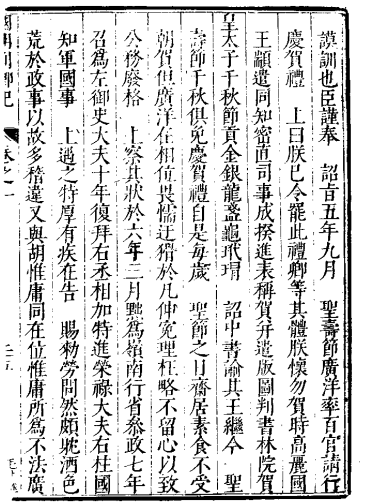 謨訓也臣謹奉　詔旨五年九月　聖壽節廣洋率百官請行
慶賀禮　上曰朕已令罷此禮卿等其體朕懷勿賀時高麗國
王顓遣同知密直司事成揆進表稱賀并遣版圖判書林院賀
皇太子千秋節貢金銀龍盞龜玳瑁　詔中書諭其王繼今　聖
壽節千秋俱免慶賀禮自是每歲　聖節之日齋居素食不受
朝賀但廣洋在相位畏懦迂猾於凡伸冤理枉略不留心以致
公務廢格　上察其狀於六年三月黜為嶺南行省叅政七年
召為左御史大夫十年復拜右丞相加特進榮祿大夫右柱國
知軍國事　上遇之特厚有疾在告　賜勅勞問然頗躭酒色
荒於政事以故多稽違又與胡惟庸同在位惟庸所為不法廣
國朝列卿紀
卷之一